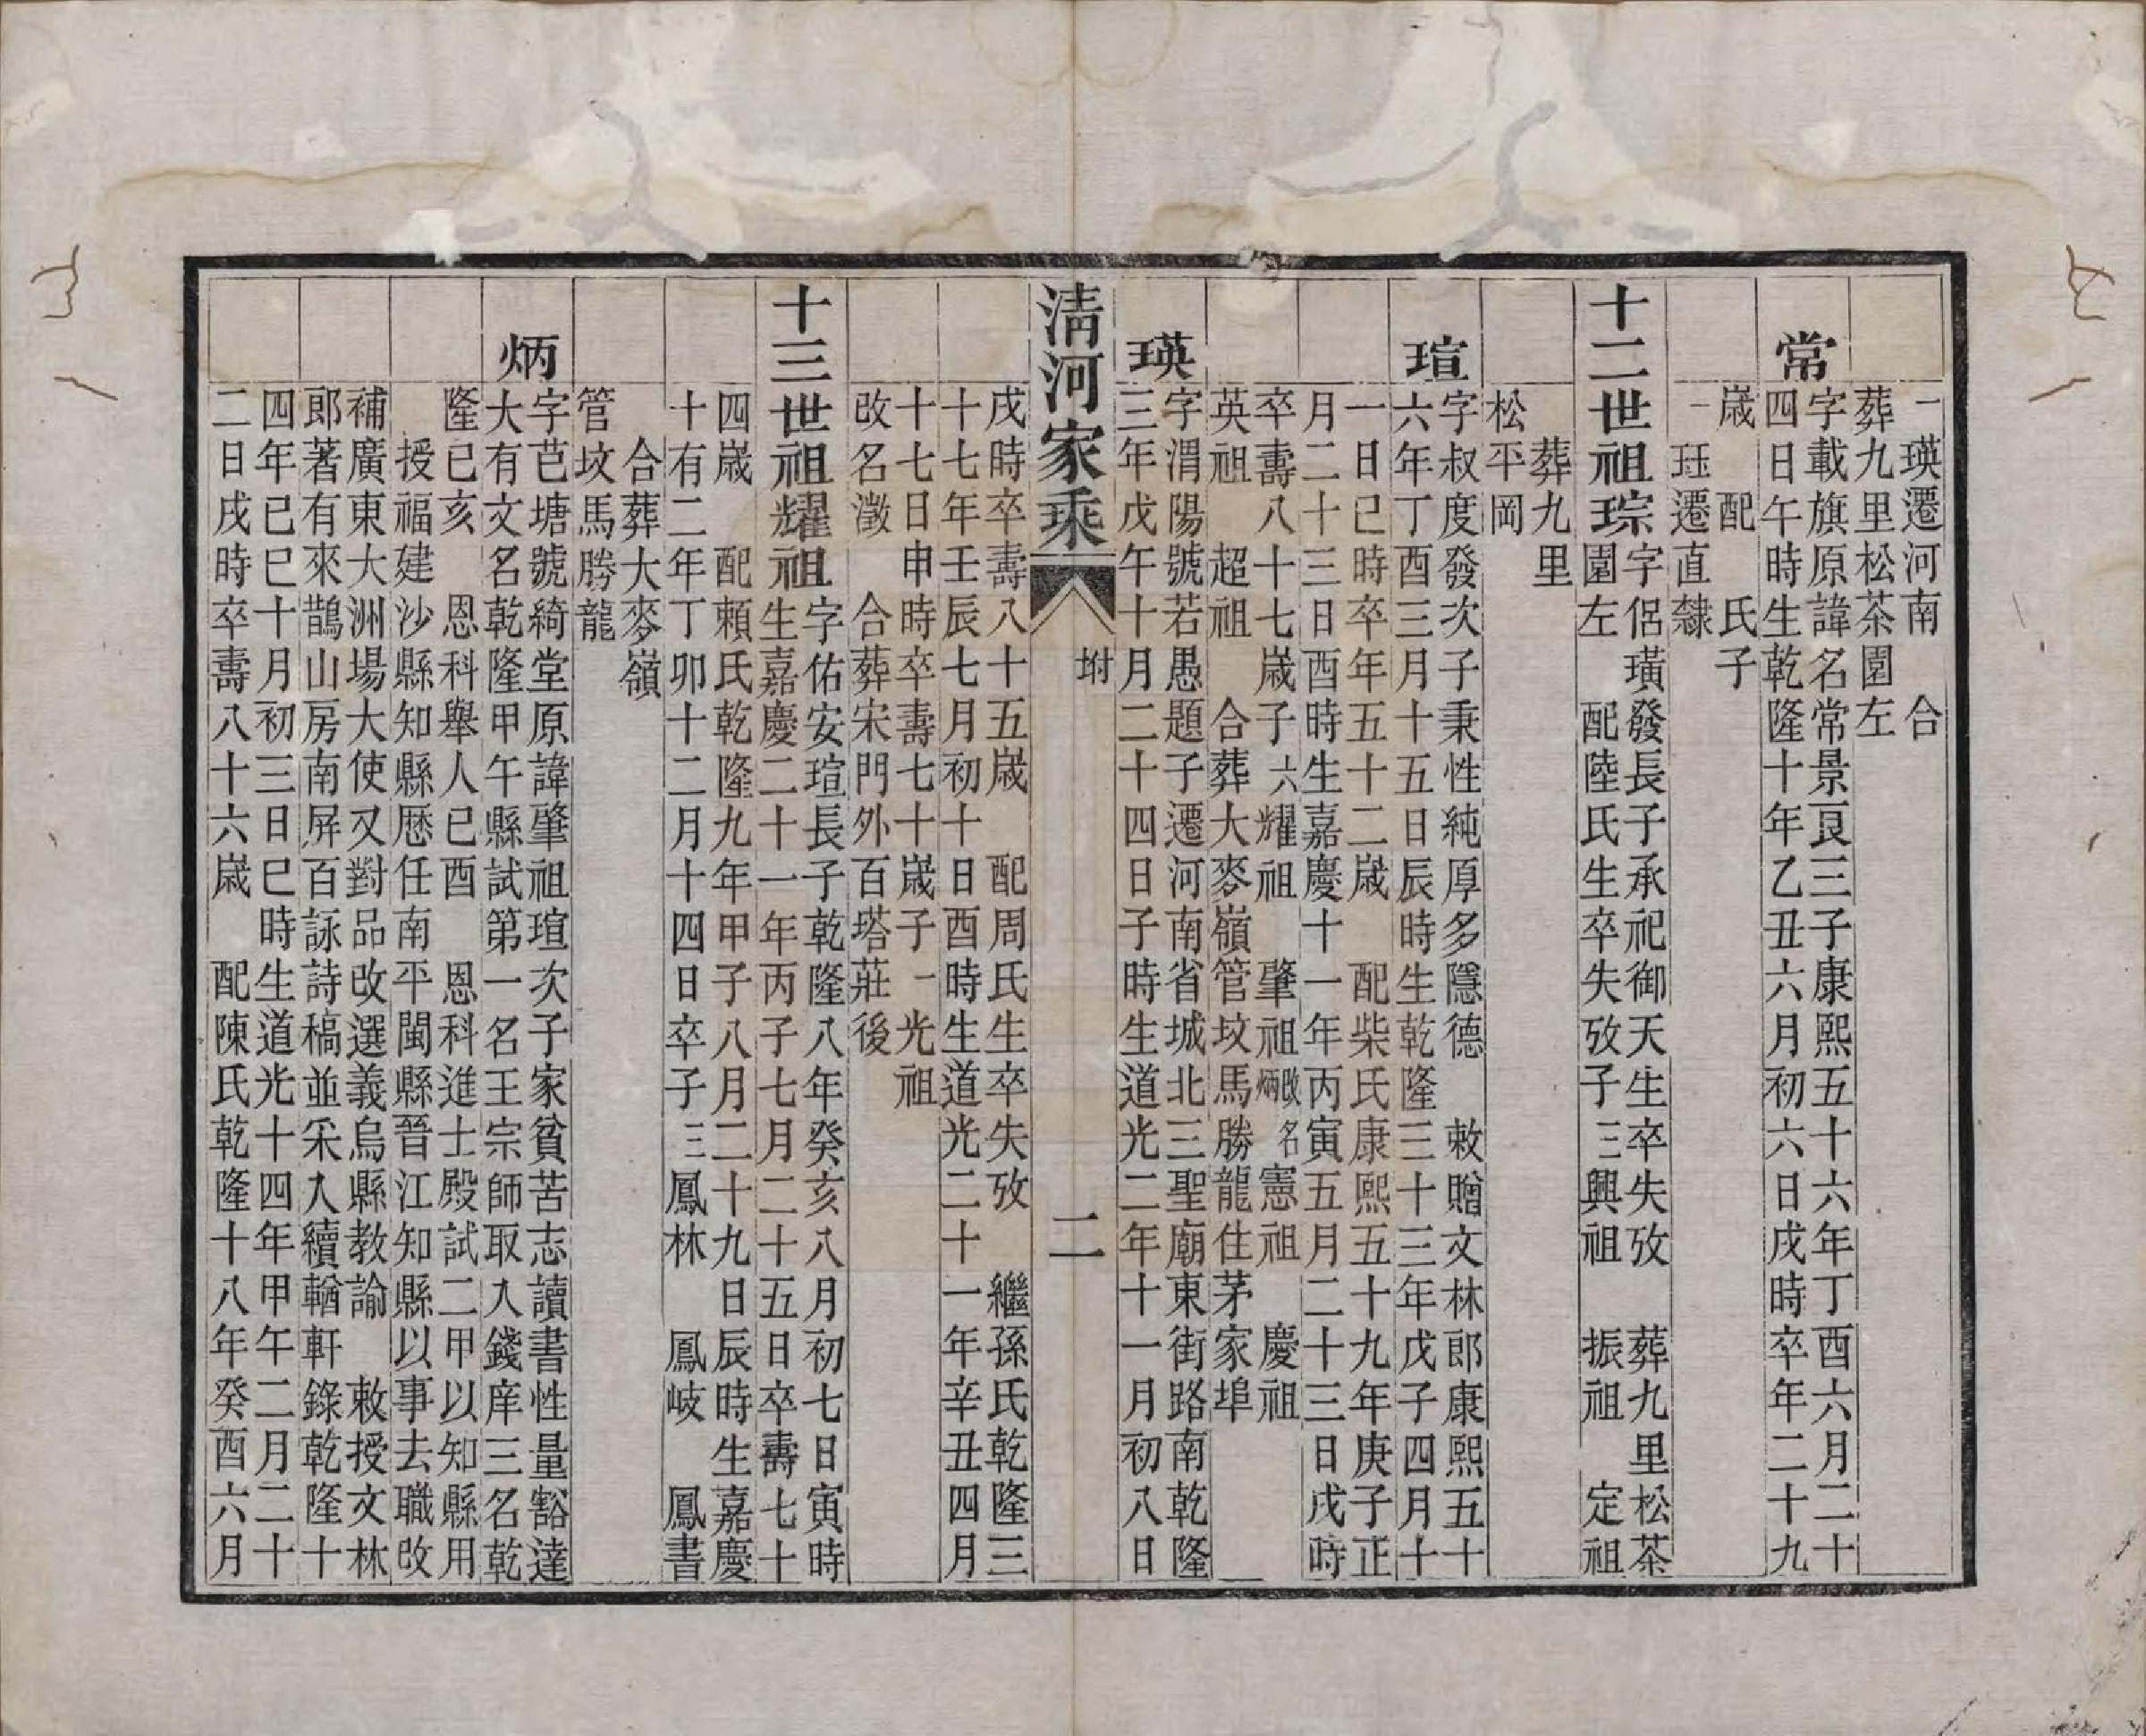 一瑛遷河南　合
葬九里松茶園左
常
字載旗原諱名常景艮三子康熙五十六年丁酉六月二十
四日午時生乾隆十年乙丑六月初六日戌時卒年二十九
歲　配　氏子
一　珏遷直隸
十二世祖琮
字侶璜發長子承祀御天生卒失攷　葬九里松茶
園左　配陸氏生卒失攷子三興祖　振祖　定祖
葬九里
松平岡
瑄
字叔度發次子秉性純厚多隱德　敕贈文林郎康熙五十
六年丁酉三月十五日辰時生乾隆三十三年戊子四月十
一日巳時卒年五十二歲　配柴氏康熙五十九年庚子正
月二十三日酉時生嘉慶十一年丙寅五月二十三日戌時
卒壽八十七歲子六耀祖　肇祖改名炳　憲祖　慶祖
英祖　超祖　合葬大麥嶺管墳馬勝龍住茅家埠
瑛
字渭陽號若愚題子遷河南省城北三聖廟東街路南乾隆
三年戊午十月二十四日子時生道光二年十一月初八日
清河家乘
坿
二
戌時卒壽八十五歲　配周氏生卒失攷　繼孫氏乾隆三
十七年壬辰七月初十日酉時生道光二十一年辛丑四月
十七日申時卒壽七十歲子一光祖
改名澂　合葬宋門外百塔莊後
十三世祖耀祖
字佑安瑄長子乾隆八年癸亥八月初七日寅時
生嘉慶二十一年丙子七月二十五日卒壽七十
四歲　配賴氏乾隆九年甲子八月二十九日辰時生嘉慶
十有二年丁卯十二月十四日卒子三鳳林　鳳岐　鳳書
合葬大麥嶺
管墳馬勝龍
炳
字芭塘號綺堂原諱肇祖瑄次子家貧苦志讀書性量豁達
大有文名乾隆甲午縣試第一名王宗師取入錢庠三名乾
隆已亥　恩科舉人已酉　恩科進士殿試二甲以知縣用
授福建沙縣知縣歷任南平閩縣晉江知縣以事去職改
補廣東大洲場大使又對品改選義烏縣教諭　敕授文林
郎著有來鵲山房南屏百詠詩稿並采入續輶軒錄乾隆十
四年巳巳十月初三日巳時生道光十四年甲午二月二十
二日戌時卒壽八十六歲　配陳氏乾隆十八年癸酉六月